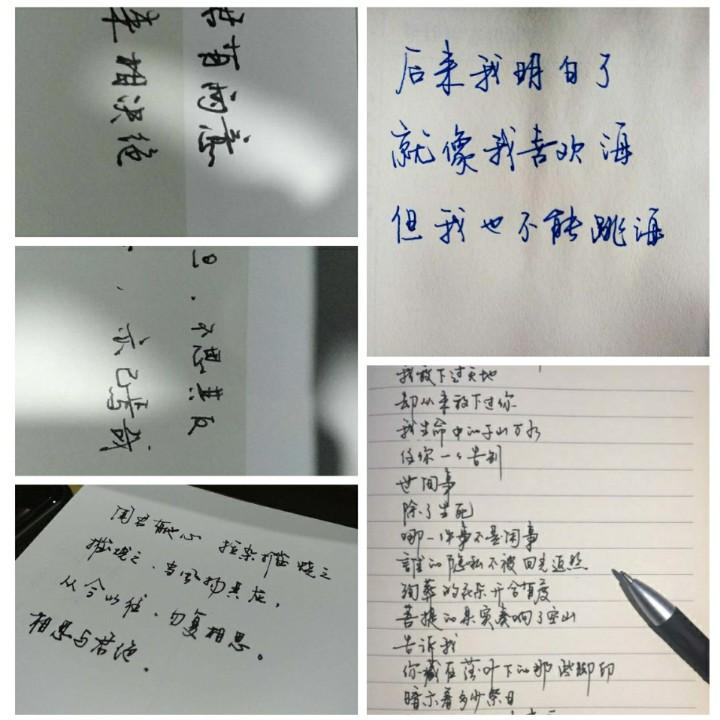 有两意
相决绝
旦，不思其反
，亦已焉哉
闻君有他心 拉杂摧烧之
摧烧之，当风扬其灰，
从今以往，勿复相思。
相思与君绝。
后来我明白了
就像我喜欢海
但我也不能跳海
我放下过天地
却从未放下过你
我生命中的千山万水
任你一一告别
世间事
除了生死
哪一件事不是闲事
誰的隐私不被回光返照
殉葬的花朵开合有度
菩提的果实奏响了空山
告诉我
你藏在落叶下的那些脚印
暗示着多少祭日